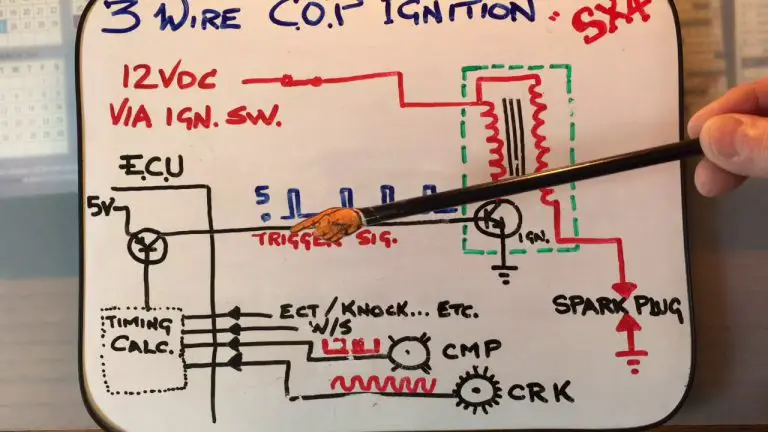 3 WIRE C.O.P IGNITION - SXA
12VDC
VIA IGN. SW.
E.C.U
5V
5
0
TRIGGER SIG.
IGN.
TIMING
CALC.
ECT/KNOCK... ETC.
W/S
CMP
CRK
SPARK PLUG